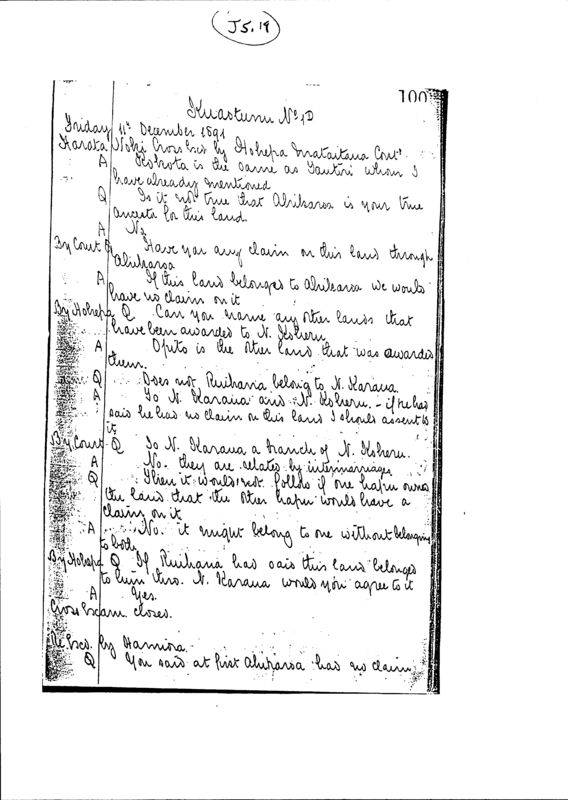 J5.19
100
Kuaotunu No 1D
Friday 11th December 1891
Karata Noki Cross Exd by Hohepa Mataitaua Contd
A Kohota is the same as Tautiri whom I
have already mentioned
Q Is it not true that Ahikaroa is your true
Ancestor for this land
A No
By Court Q Have you any claim on this land through
Ahikaroa
A If this land belonged to Ahikaroa we would
have no claim on it
By Hohepa Q Can you name any other lands that
have been awarded to N. Koheru
A Opito is the other land that was awarded
them.
Q Does not Ruihana belong to N. Karaua
A To N. Karaua and N. Koheru - if he had
said he had no claim on this land I should assent to
it
By Court Q Is N. Karaua a branch of N. Koheru.
A No. they are related by intermarriages
Q Then it would not follow if one hapu owned
the land that the other hapu would have a
claim on it
A No. it might belong to one without belonging
to both
By Hohepa Q If Ruihana had said this land belonged
to him thro. N. Karaua would you agree to it
A Yes.
Cross Exam closed.
Re Exd. by Hamiora
Q You said at first Ahikaroa had no claim